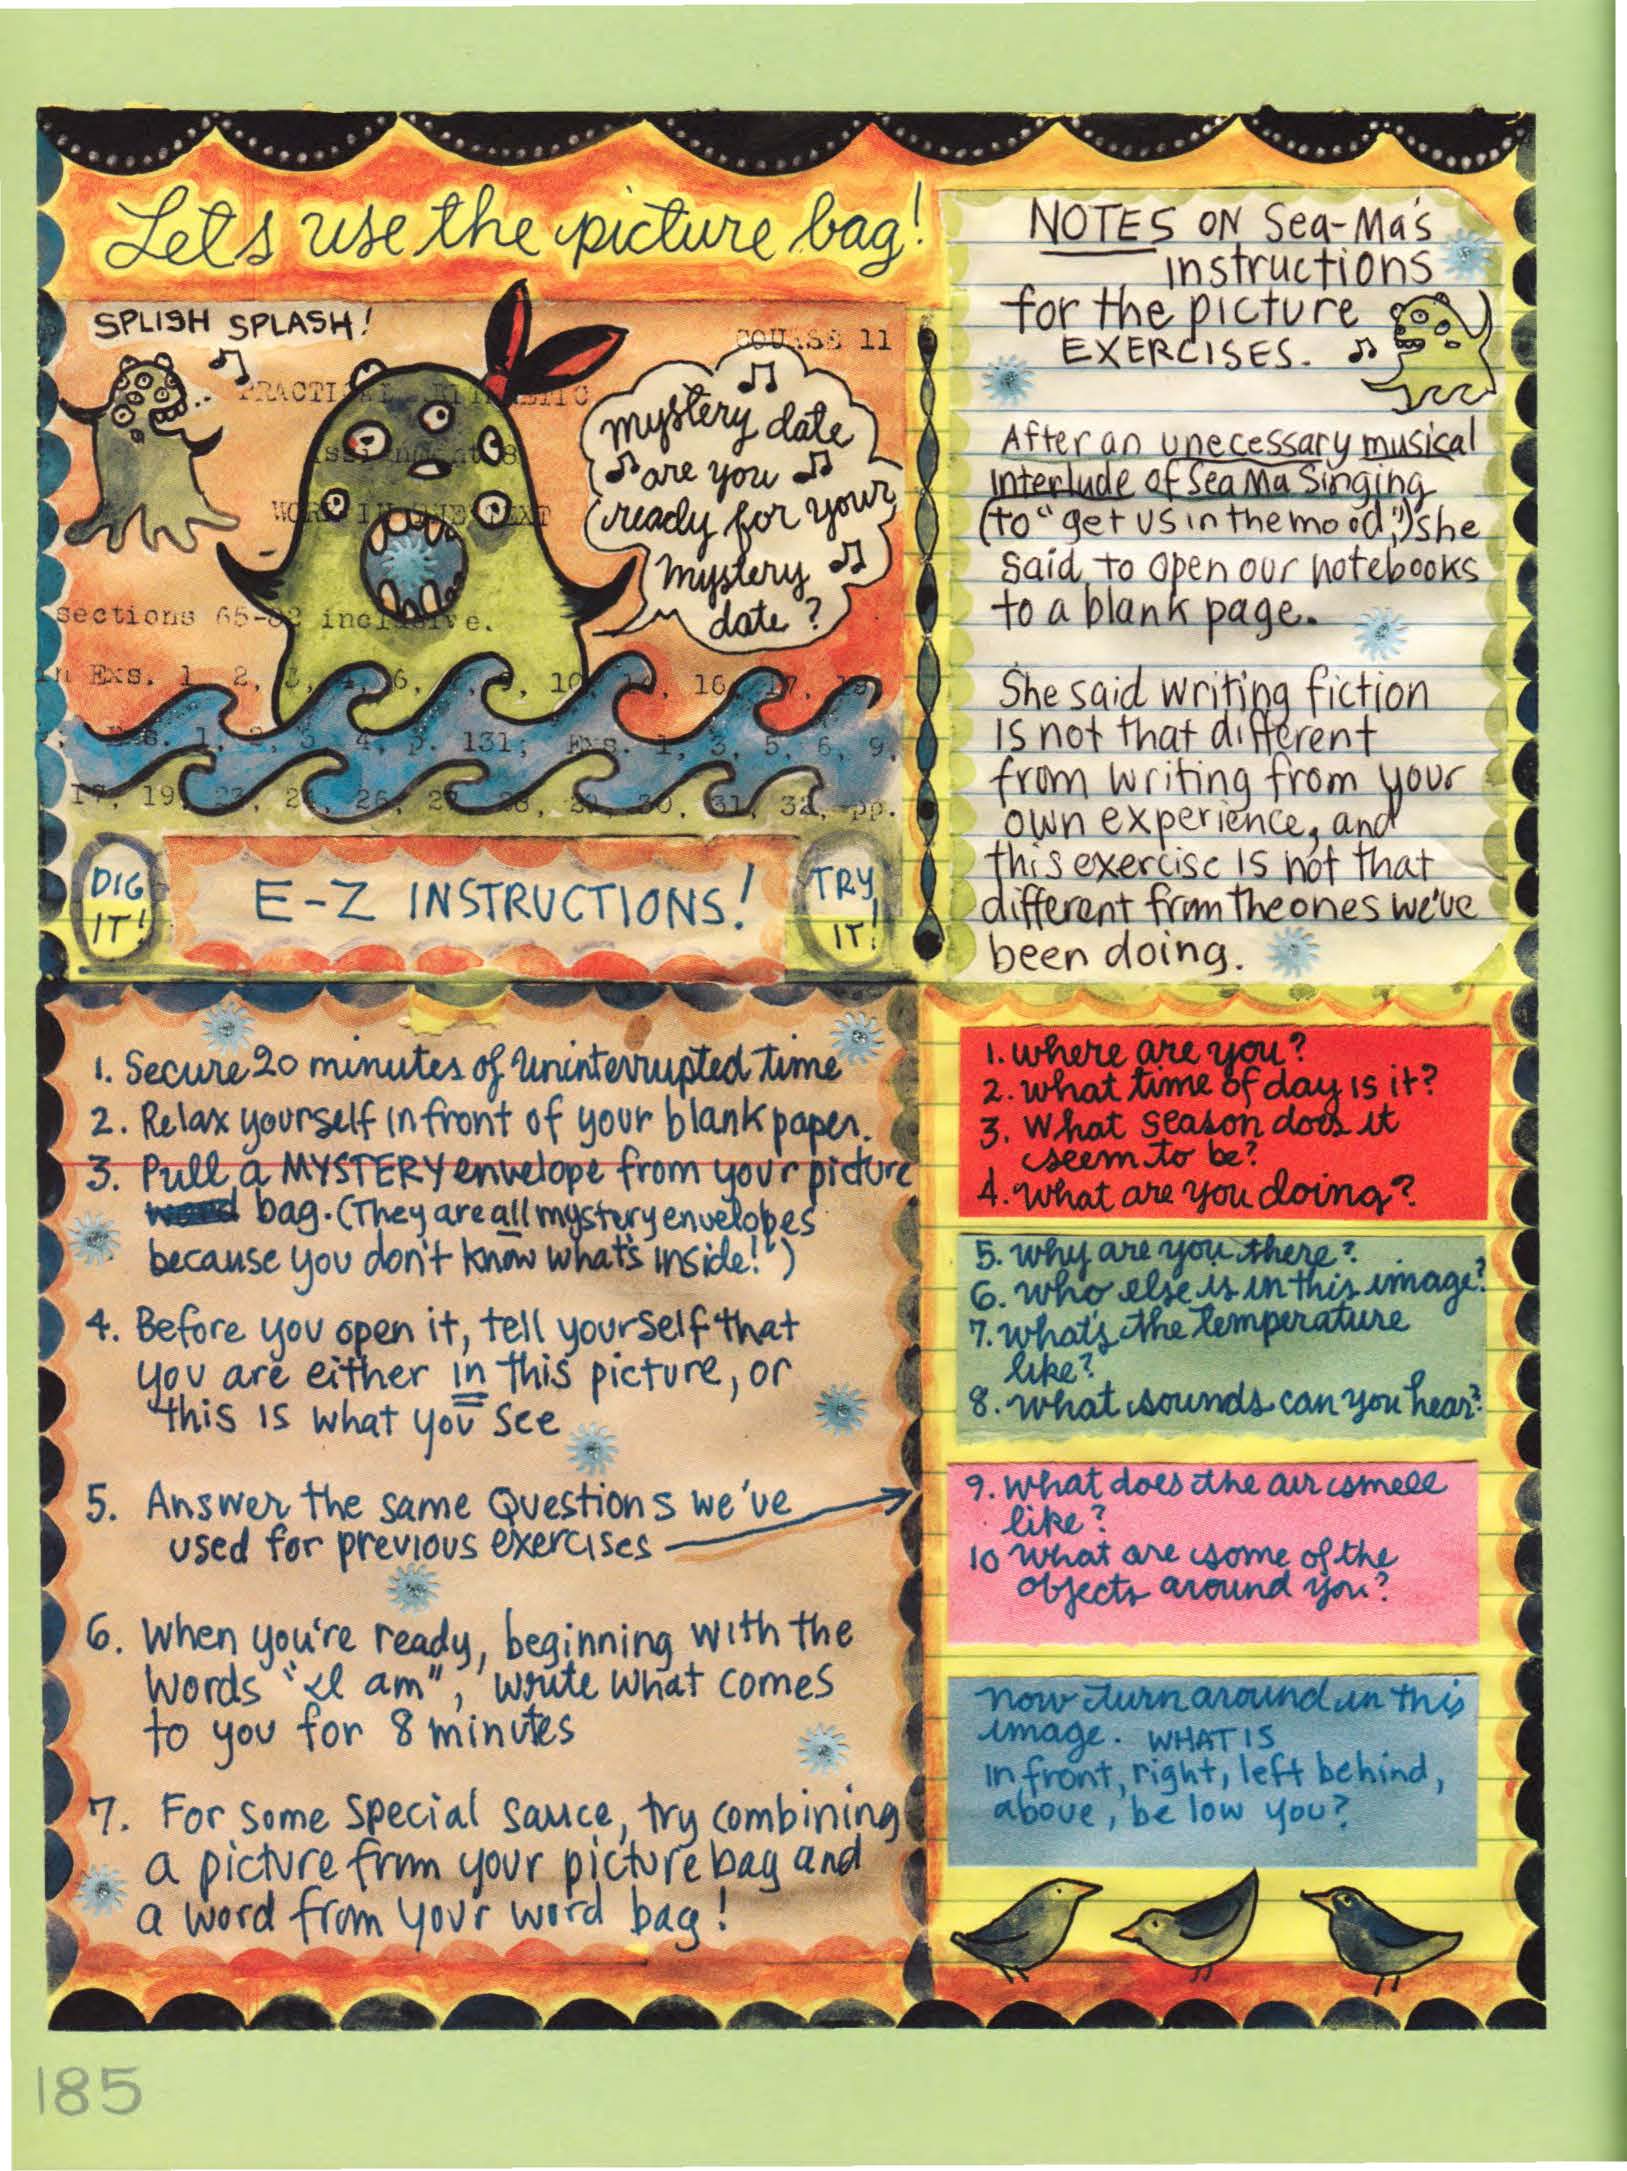 Let's use the picture bag!
SPLISH SPLASH!
COURSE 11
PRACTICAL ARITHMETIC
Assignment 8
WORK IN THE TEXT
sections 65-82 inclusive.
In Exs. 1, 2, 3, 4, 6, 10, 16, 17, 19,
Exs. 1, 2, 3, 4, p. 131; Exs. 1, 3, 5, 6, 9,
17, 19, 23, 26, 27, 28, 29, 30, 31, 32, pp.
mystery date
are you
ready for your
mystery
date?
DIG
IT!
E-Z INSTRUCTIONS!
TRY
IT!
NOTES ON Sea-Ma's
instructions
for the picture
EXERCISES.
After an unecessary musical
interlude of Sea Ma Singing
(to "get us in the mood",) she
said to open our notebooks
to a blank page.
She said writing fiction
is not that different
from writing from your
own experience, and
this exercise is not that
different from the ones we've
been doing.
1. Secure 20 minutes of uninterrupted time
2. Relax yourself in front of your blank paper.
3. Pull a MYSTERY envelope from your picture
word bag. (They are all mystery envelopes
because you don't know what's inside!")
4. Before you open it, tell yourself that
you are either in this picture, or
this is what you see
5. Answer the same Questions we've
used for previous exercises
6. When you're ready, beginning with the
words "I am", write what comes
to you for 8 minutes
7. For some special sauce, try combining
a picture from your picture bag and
a word from your word bag!
1. where are you?
2. what time of day is it?
3. What season does it
seem to be?
4. What are you doing?
5. why are you there?
6. who else is in this image?
7. what's the temperature
like?
8. what sounds can you hear?
9. what does the air smell
like?
10 what are some of the
objects around you?
now turn around in this
image. WHAT IS
in front, right, left behind,
above, be low you?
185